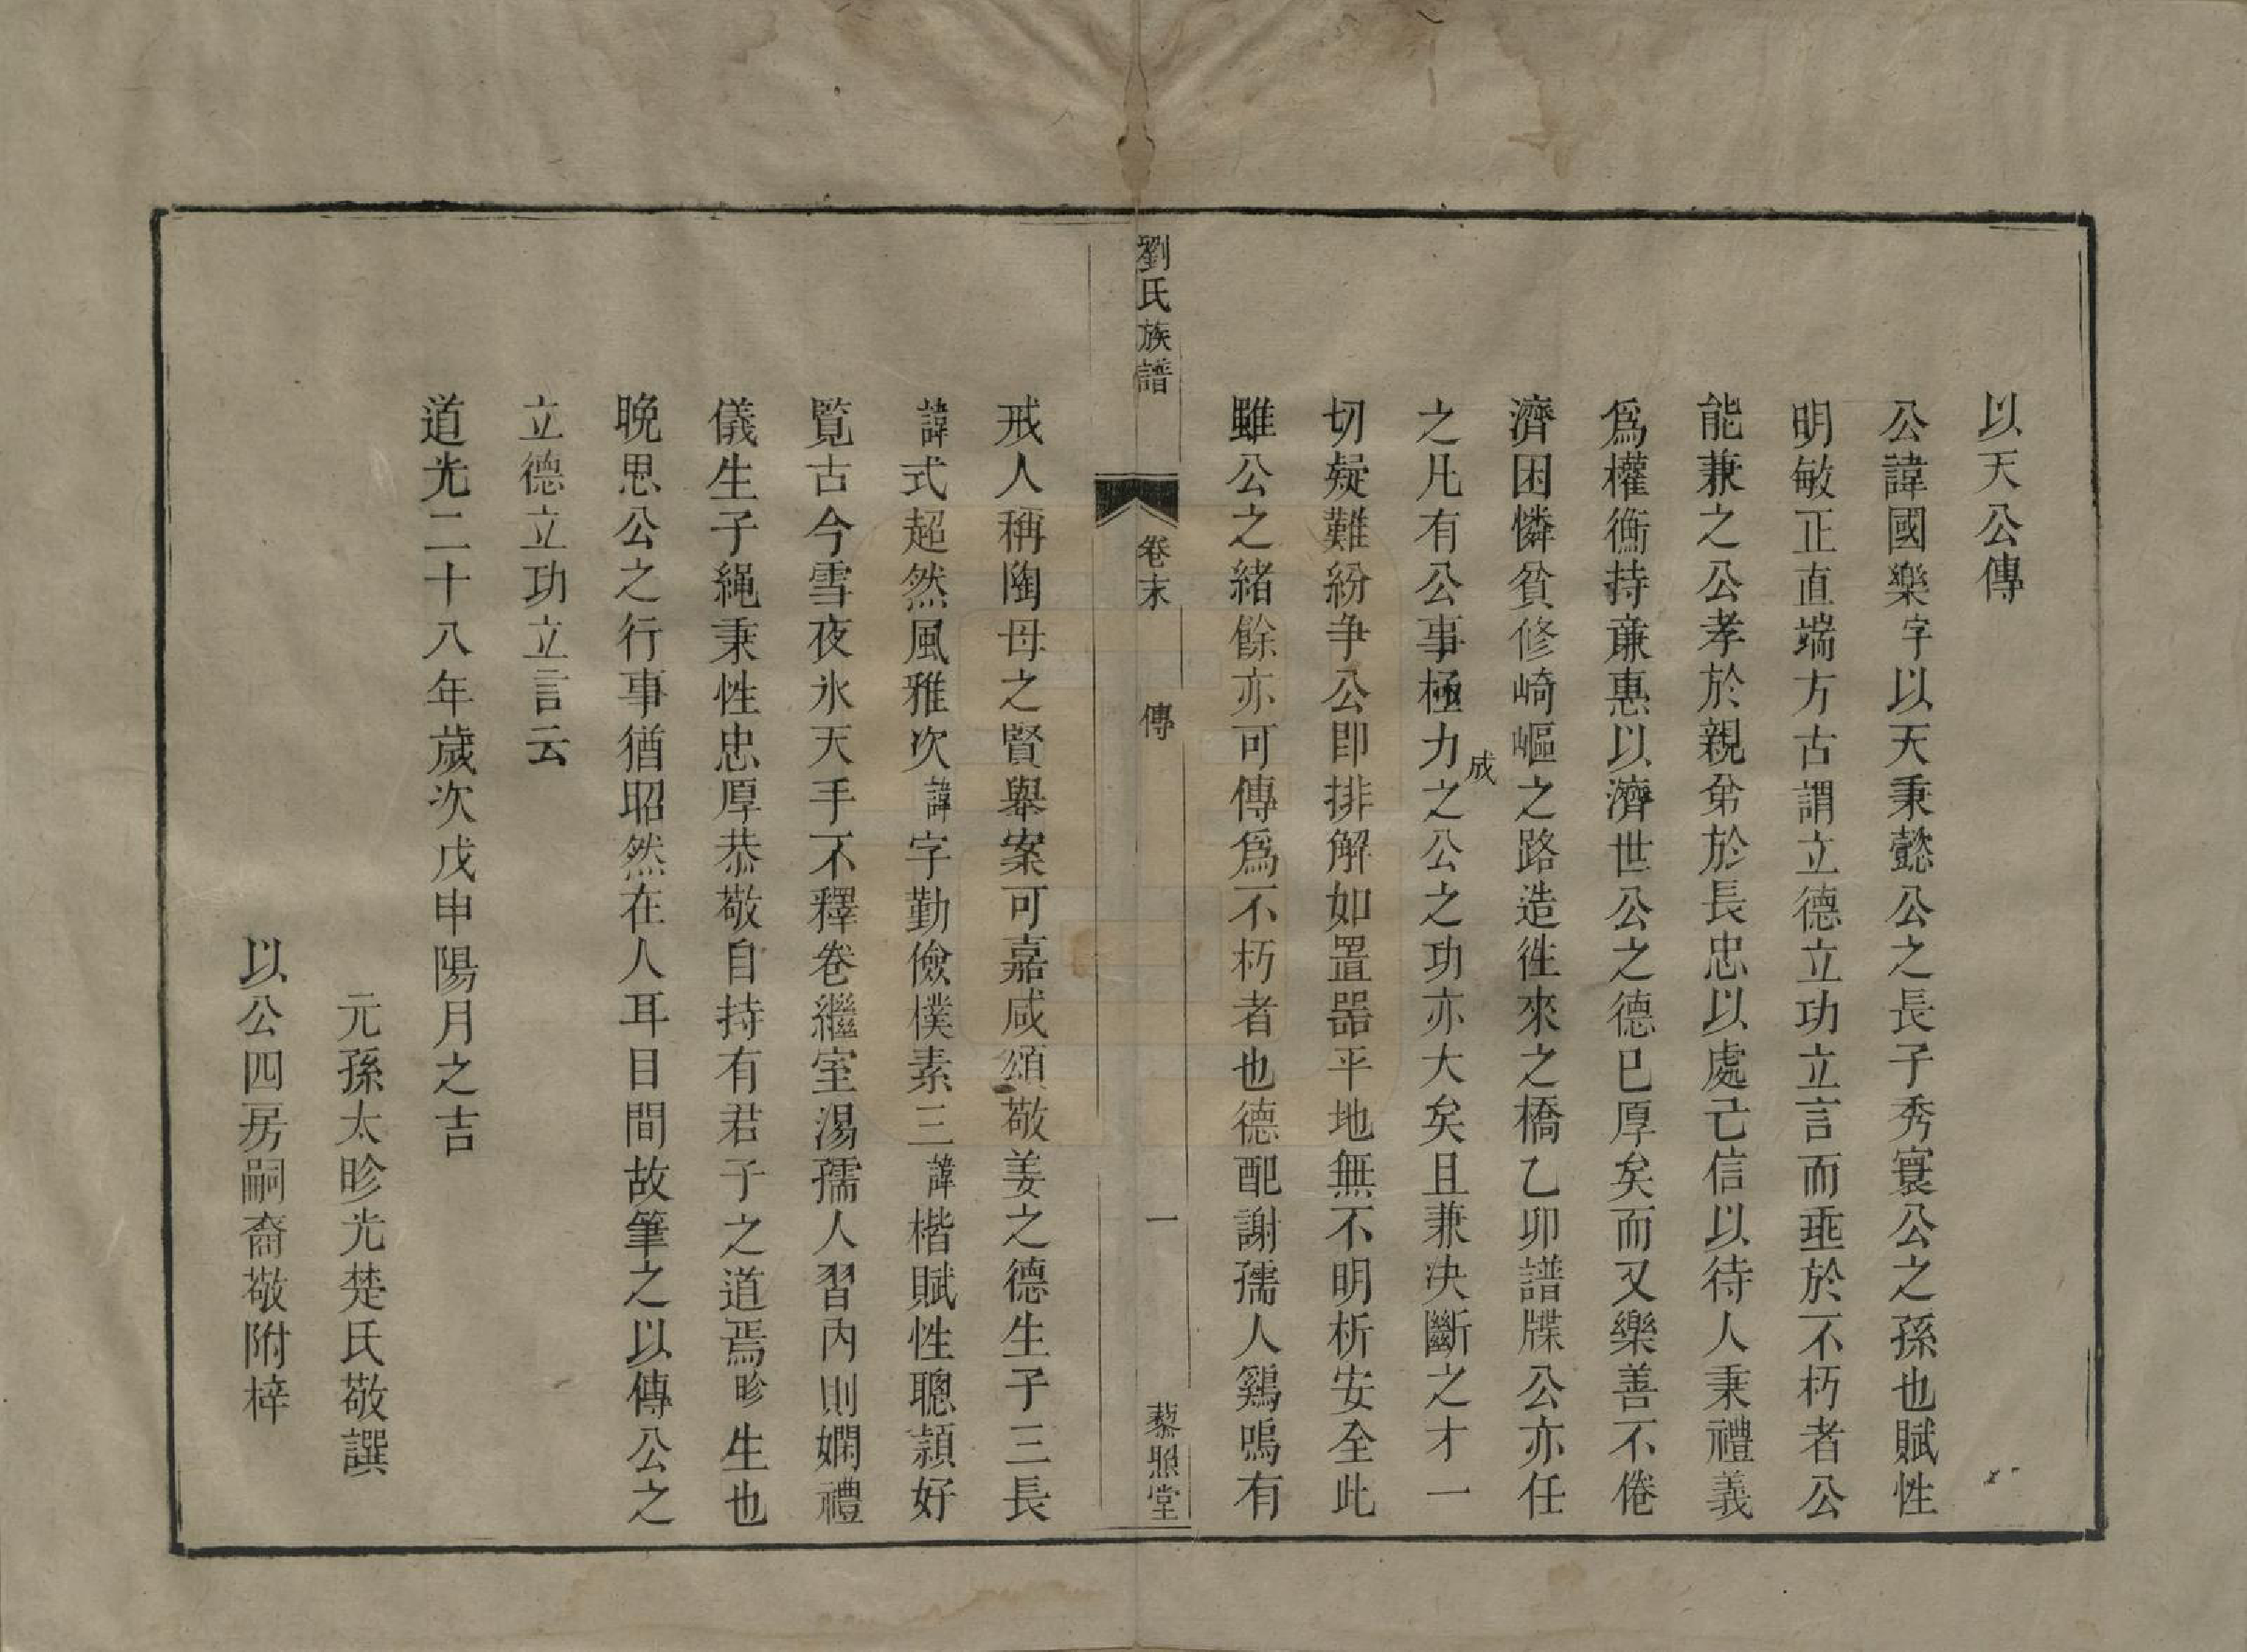 以天公傳
公諱國樂字以天秉懿公之長子秀寰公之孫也賦性
明敏正直端方古謂立德立功立言而垂於不朽者公
能兼之公孝於親弟於長忠以處己信以待人秉禮義
爲權衡持亷惠以濟世公之德已厚矣而又樂善不倦
濟困憐貧修崎嶇之路造徃來之橋乙卯譜牒公亦任
之凡有公事極力成之公之功亦大矣且兼决斷之才一
切疑難紛争公即排解如置器平地無不明析安全此
雖公之緒餘亦可傳爲不朽者也德配謝孺人鷄鳴有
劉氏族譜
卷末
傳
一
藜照堂
戒人稱陶母之賢舉案可嘉咸頌敬姜之德生子三長
諱式超然風雅次諱字勤儉樸素三諱楷賦性聰穎好
覧古今雪夜氷天手不釋卷繼室湯孺人習內則嫻禮
儀生子繩秉性忠厚恭敬自持有君子之道焉昣生也
晚思公之行事猶昭然在人耳目間故筆之以傳公之
立德立功立言云
道光二十八年歲次戊申陽月之吉
元孫太昣光楚氏敬譔
以公四房嗣裔敬附梓